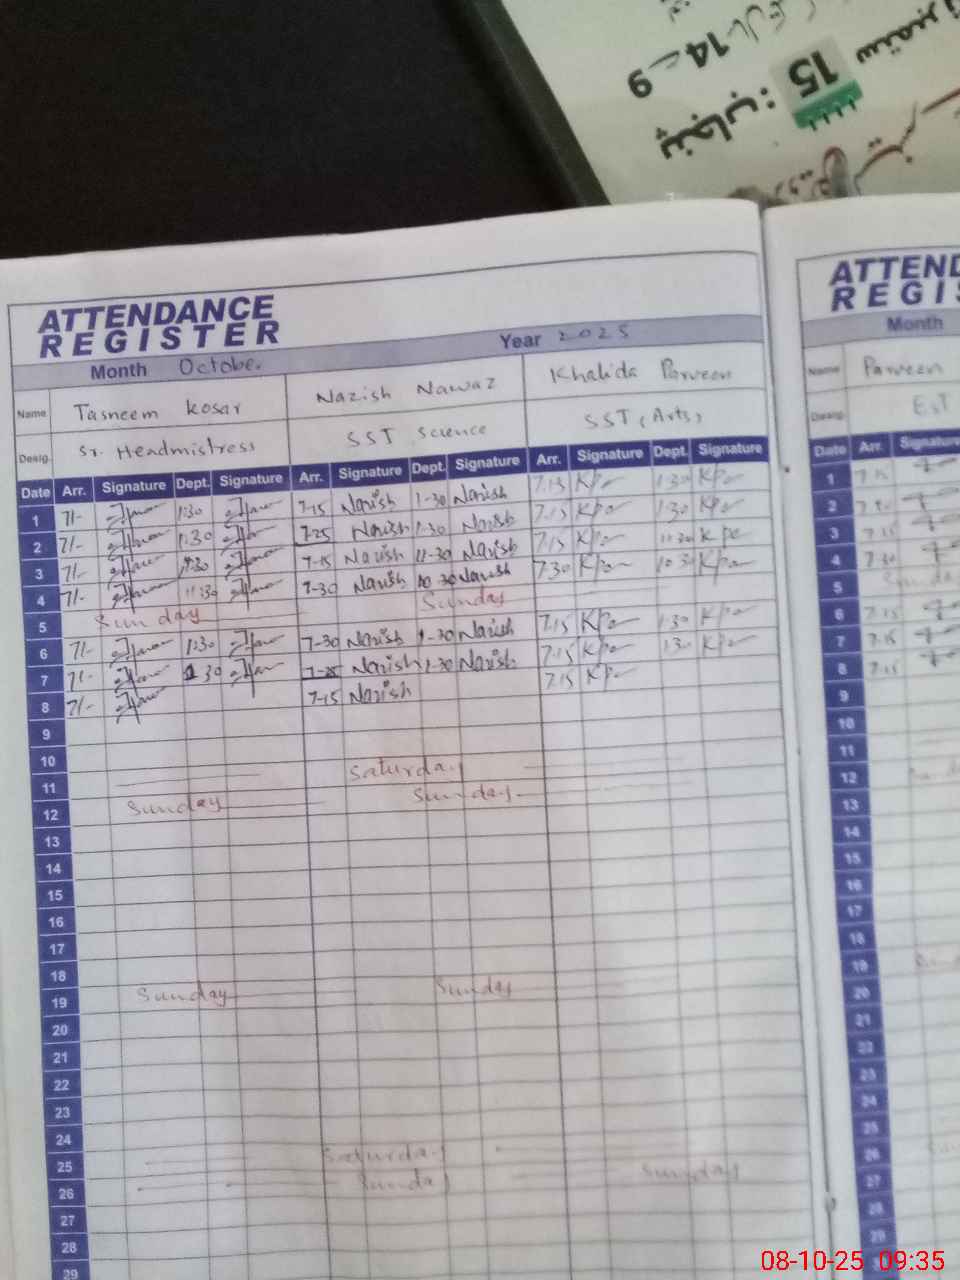 9 - 14
پنجاب : 15 ستمبر
ATTENDANCE
REGISTER
Month October. Year 2025
Name Tasneem Kosar Nazish Nawaz Khalida Parveen
Desig. Sr. Headmistress SST Science SST (Arts)
Date Arr. Signature Dept. Signature Arr. Signature Dept. Signature Arr. Signature Dept. Signature
1 7/- 1:30 7-15 Nazish 1-30 Nazish 7.15 1:30
2 7/- 1:30 7-25 Nazish 1-30 Nazish 7.15 1:30
3 7/- 7-15 Nazish 11-30 Nazish 7.15 11:30
4 7/- 11:30 7-30 Nazish 10-30 Nazish 7.30 10:30
5 Sunday Sunday
6 7/- 1:30 7-30 Nazish 1-30 Nazish 7.15 1.30
7 7/- 1:30 Nazish 1-30 Nazish 7.15 1:30
8 7/- 7-15 Nazish 7.15
9
10
11 Saturday
12 Sunday Sunday
13
14
15
16
17
18
19 Sunday Sunday
20
21
22
23
24
25 Saturday
26 Sunday Sunday
27
28
29
ATTEND
REGIS
Month
Name Parveen
Desig. EST
Date Arr. Signature
1 7.15
2
3 7.15
4 7.30
5 Sunday
6 7.15
7 7.15
8 7.15
9
10
11
12
13
14
15
16
17
18
19
20
21
22
23
24
25
26
27
28
29
08-10-25 09:35